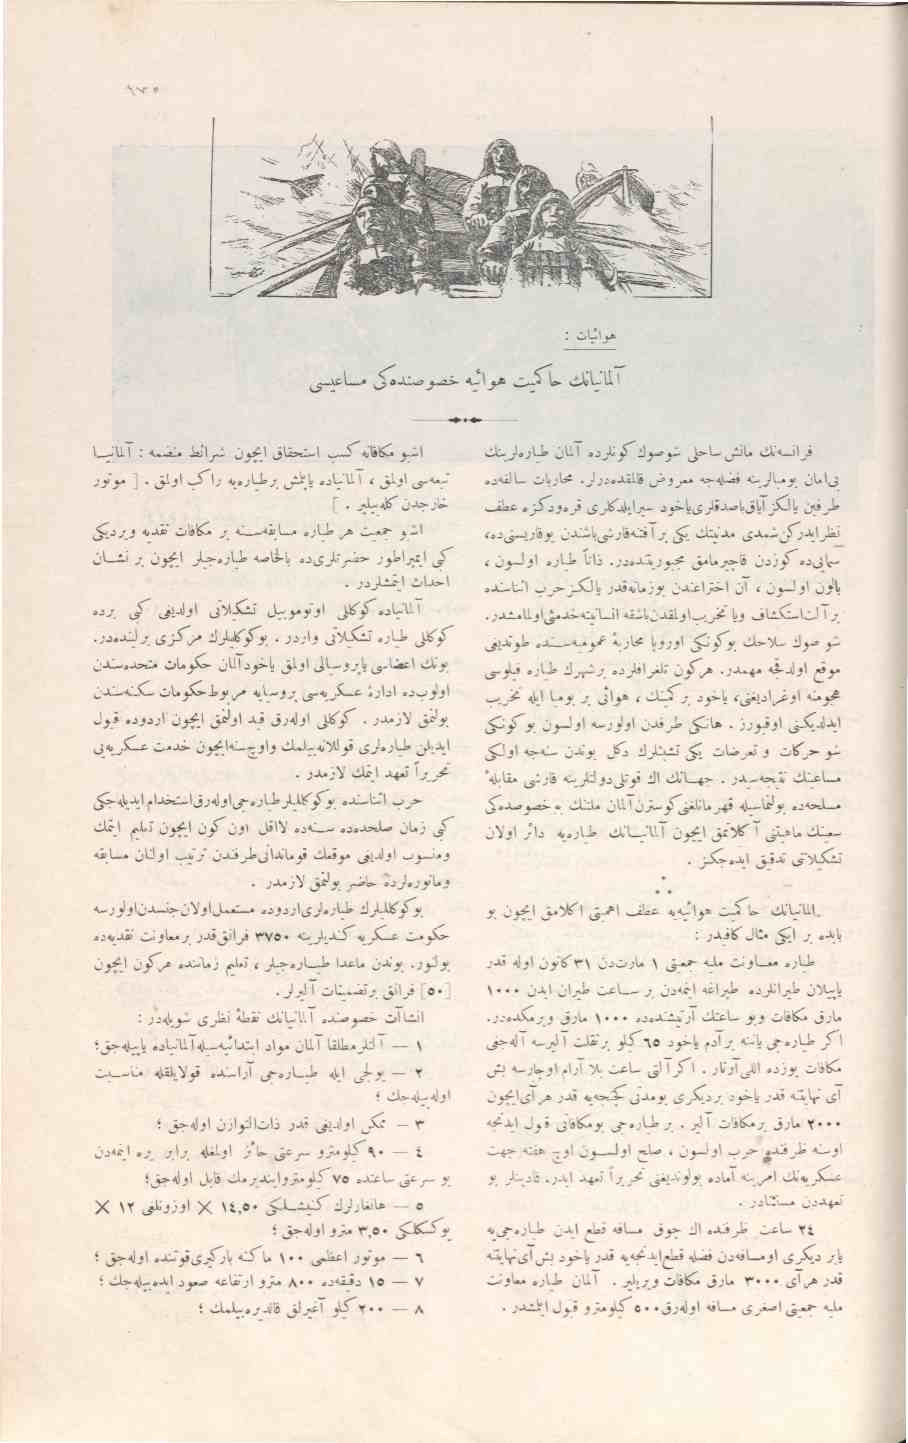 ٦٧٥
هوائیات :
آلمانیانك حاكمیت هوائیه خصوصنده‌كی مساعیسی
فرانسه‌نك مانش ساحلی شوصوك كونلرده آلمان طیاره‌لرینك
بی‌امان بومبالرینه فضله‌جه معروض قالمقده‌درلر. محاربات سالفه‌ده
طرفین یالكز آیاق باصدقلری یاخود سیرایلدكلری قره‌ودكزه عطف
نظر ایدركن شمدی مدنیتك یكی بر آفتنه قارشی باشندن یوقاریسی‌ده،
سمایی‌ده كوزدن قاچیرمامق مجبوریتنده‌در. ذاتاً طیاره اولسون ،
بالون اولسون ، آن اختراعندن بوزمانه‌قدر یالكز حرب اثناسنده
بر آلت استكشاف ویا تخریب اولمقدن باشقه انسانیته خدمتی اولمامشدر.
شو صوك سلاحك بوكونكی اوروپا محاربهٔ عمومیه‌سنده طوتدیغی
موقع اولدقجه مهمدر. هركون تلغرافلرده بر شهرك طیاره فیلوسی
هجومنه اوغرادیغنی، یاخود بر كمینك ، هوائی بر بومبا ایله تخریب
ایدلدیكنی اوقیورز . هانكی طرفدن اولورسه اولسون بو كونكی
شو حركات و تعرضات یكی تشبثلرك دكل بوندن سنه‌جه اولكی
مساعینك نتیجه‌سیدر . جهانك اك قوتلی دولتلرینه قارشی مقابلهٔ
مسلحه‌ده بولنماسیله قهرمانلغنی كوسترن آلمان ملتنك بو خصوصده‌كی
سعینك ماهیتنی آكلاتمق ایچون آلمانیانك طیاره‌یه دائر اولان
تشكیلاتی تدقیق ایده‌جكز .
آلمانیانك حاكمیت هوائیه‌یه عطف اهمیتی اكلامق ایچون بو
بابده بر ایكی مثال كافیدر :
طیاره معاونت ملیه جمعیتی ١ مارت‌دن ٣١ كانون اوله قدر
یاپیلان طیرانلرده طپراغه ایتمه‌دن بر ساعت طیران ایدن ١٠٠٠
مارق مكافات وبو ساعتك آرتیشنده‌ده ١٠٠٠ مارق ویرمكده‌در.
اكر طیاره‌جی یاننه بر آدم یاخود ٦٥ كیلو بر ثقلت آلیرسه آله‌جغی
مكافات یوزده اللی آرتار . اكر آلتی ساعت بلا آرام اوچارسه بش
آی نهایتنه قدر یاخود بر دیكری بومدتی كچنجه‌یه قدر هر آی ایچون
٢٠٠٠ مارق بر مكافات آلیر . بر طیاره‌جی بومكافاتی قبول ایدنجه
اوسنه ظرفنده حرب اولسون ، صلح اولسون اوچ هفته جهت
عسكریه‌نك امرینه آماده بولوندیغنی تحریراً تعهد ایدر. قادینلر بو
تعهددن مستثنادر .
٢٤ ساعت ظرفنده اك چوق مسافه قطع ایدن طیاره‌جی‌یه
یابر دیكری اومسافه‌دن فضله قطع ایدنجه‌یه قدر یاخود بش آی نهایتنه
قدر هر آی ٣٠٠٠ مارق مكافات ویریلیر . آلمان طیاره معاونت
ملیه جمعیتی اصغری مسافه اوله‌رق ٥٠٠ كیلومترو قبول ایتمشدر .
اشبو مكافاته كسب استحقاق ایچون شرائط منضمه : آلمانیا
تبعه‌سی اولمق ، آلمانیاده یاپلمش بر طیاره‌یه راكب اولمق . [ موتور
خارجدن كله‌بیلیر . ]
اشبو جمعیت هر طیاره مسابقه‌سنه بر مكافات نقدیه ویردیكی
كبی ایمپراطور حضرتلری‌ده بالخاصه طیاره‌جیلر ایچون بر نشان
احداث ایتمشلردر .
آلمانیاده كوكللی اوتوموبیل تشكیلاتی اولدیغی كبی برده
كوكللی طیاره تشكیلاتی واردر . بوكوكللیلرك مركزی برلینده‌در.
بونك اعضاسی یاپروسیالی اولمق یاخود آلمان حكومات متحده‌سندن
اولوب‌ده ادارهٔ عسكریه‌سی پروسیایه مربوط حكومات سكنه‌سندن
بولنمق لازمدر . كوكللی اوله‌رق قید اولنمق ایچون اردوده قبول
ایدیلن طیاره‌لری قوللانه‌بیلمك واوچ سنه ایچون خدمت عسكریه‌یی
تحریراً تعهد ایتمك لازمدر .
حرب اثناسنده بوكوكللیلر طیاره‌جی اوله‌رق استخدام ایدیله‌جكی
كبی زمان صلحده‌ده سنه‌ده لااقل اون كون ایچون تعلیم ایتمك
ومنسوب اولدیغی موقعك قوماندانی طرفندن ترتیب اولنان مسابقه
ومانوره‌لرده حاضر بولنمق لازمدر .
بوكوكللیلرك طیاره‌لری اردوده مستعمل اولان جنسدن اولورسه
حكومت عسكریه كندیلرینه ٣٧٥٠ فرانق قدر بر معاونت نقدیه‌ده
بولنور. بوندن ماعدا طیاره‌جیلر ، تعلیم زماننده هركون ایچون
[٥٠] فرانق بر تضمینات آلیرلر.
انشاآت خصوصنده آلمانیانك نقطهٔ نظری شویله‌در :
١ — آلتلر مطلقا آلمان مواد ابتدائیه‌سیله آلمانیاده یاپیله‌جق؛
٢ — یولجی ایله طیاره‌جی آراسنده قولایلقله مناسبت
اوله‌بیله‌جك ؛
٣ — ممكن اولدیغی قدر ذات‌التوازن اوله‌جق ؛
٤ — ٩٠ كیلومترو سرعتی حائز اولمغله برابر یره ایتمه‌دن
بو سرعتی ساعتده ٧٥ كیلومترو ایندیرمك قابل اوله‌جق؛
٥ — هانغارلرك كنیشلكی ١٤,٥٠ × اوزونلغی ١٢ ×
یوكسكلكی ٣,٥٠ مترو اوله‌جق ؛
٦ — موتور اعظمی ١٠٠ ماكنه باركیری قوتنده اوله‌جق ؛
٧ — ١٥ دقیقه‌ده ٨٠٠ مترو ارتفاعه صعود ایده‌بیله‌جك ؛
٨ — ٢٠٠ كیلو آغیرلق قالدیره‌بیلمك ؛